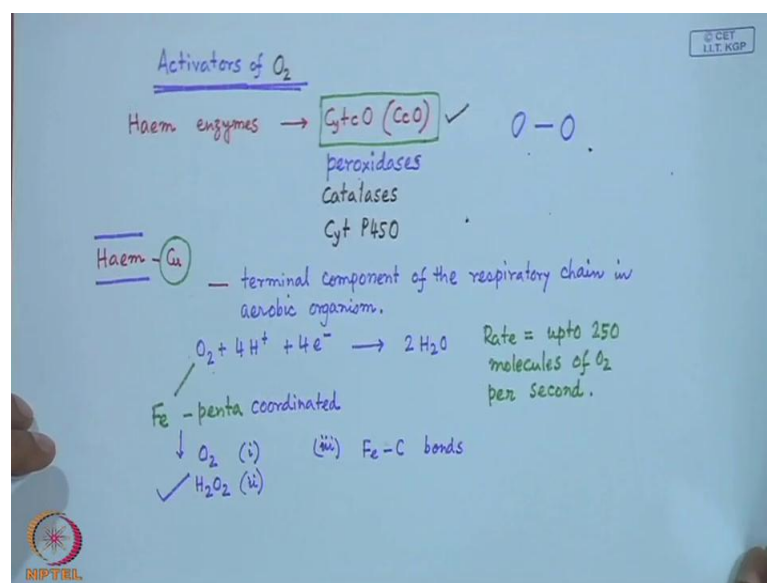 © CET
I.I.T. KGP
Activators of O2
Haem enzymes → CytcO (CcO) ✓ O - O
peroxidases
Catalases
Cyt P450
Haem - Cu
— terminal component of the respiratory chain in
aerobic organism.
O2 + 4H+ + 4e- → 2 H2O
Rate = upto 250
molecules of O2
per second.
Fe - penta coordinated
↓ O2 (i) (iii) Fe-C bonds
✓ H2O2 (ii)
NPTEL